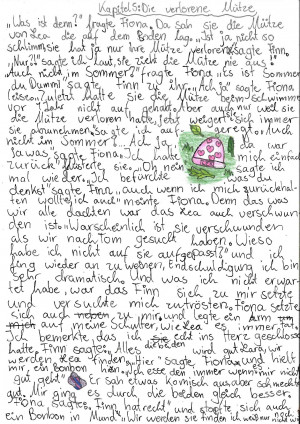 Kapitel 5: Die verlorene Mütze
"Was ist denn?" fragte Fiona. Da sah sie die Mütze
von Lea die auf dem Boden lag. "Ist ja nicht so
schlimm, sie hat ja nur ihre Mütze verloren" sagte Finn.
"Nur?!" sagte ich laut, "sie zieht die Mütze nie aus!"
"Auch nicht im Sommer?" fragte Fiona "Es ist Sommer
du Dummi!" sagte Finn zu ihr. "Ach ja" sagte Fiona
leise
vor Jahr nicht auf gehabt. Aber auch nur weil sie
die Mütze verloren hatte. Jetzt weigert sie sich immer
sie abzunehmen." Sagte ich auf geregt. "Auch
nicht im Sommer?" "Ach ja" da war
ja was" sagte Fiona. Ich hatte mich einfach
zurück flüsterte sie. "Oh nein" sagte ich
mal wieder. "Ich befürchte was du
denkst" sagte Finn "auch wenn ich mich zurückhal-
ten wollte, ich auch" meinte Fiona. Denn das was
wir alle dachten war das Lea auch verschwun-
den ist. "Warscheinlich ist sie verschwunden
als wir nach Tom gesucht haben. Wieso
habe ich nicht auf sie aufgepasst?" und ich
fing wieder an zu weinen. Entschuldigung ich bin
sehr dramatische und was ich nicht erwar-
tet habe war das Finn sich zu mir setzte
und versuchte mich zu trösten. Fiona setzte
sich auch neben zu mir und legte ein Arm
auf meine Schulter, wie Lea es immer tat.
Ich bemerkte, das ich echt ins Herz geschlossen
hatte. Finn sagte: "Alles wird gut. Lea wir
werden Lea finden." "Hier" sagte Fiona und hielt
mir ein bonbon hin. "Ich esse den immer wenn mir nicht
gut geht" Er sah etwas komisch aus, aber schmeckte
gut. Mir ging es durch die beiden gleich besser.
Fiona sagte "Finn hat recht" und stopfte sich auch
ein Bonbon in Mund. "Wir werden sie finden